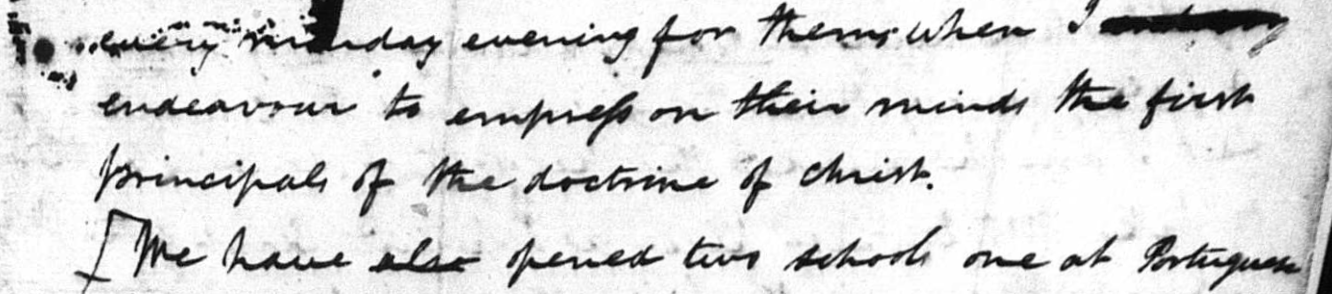 every monday evening for them, when I
endeavour to empress on their minds the first
principals of the doctrine of christ.
[We have also opened two schools one at Portuguese